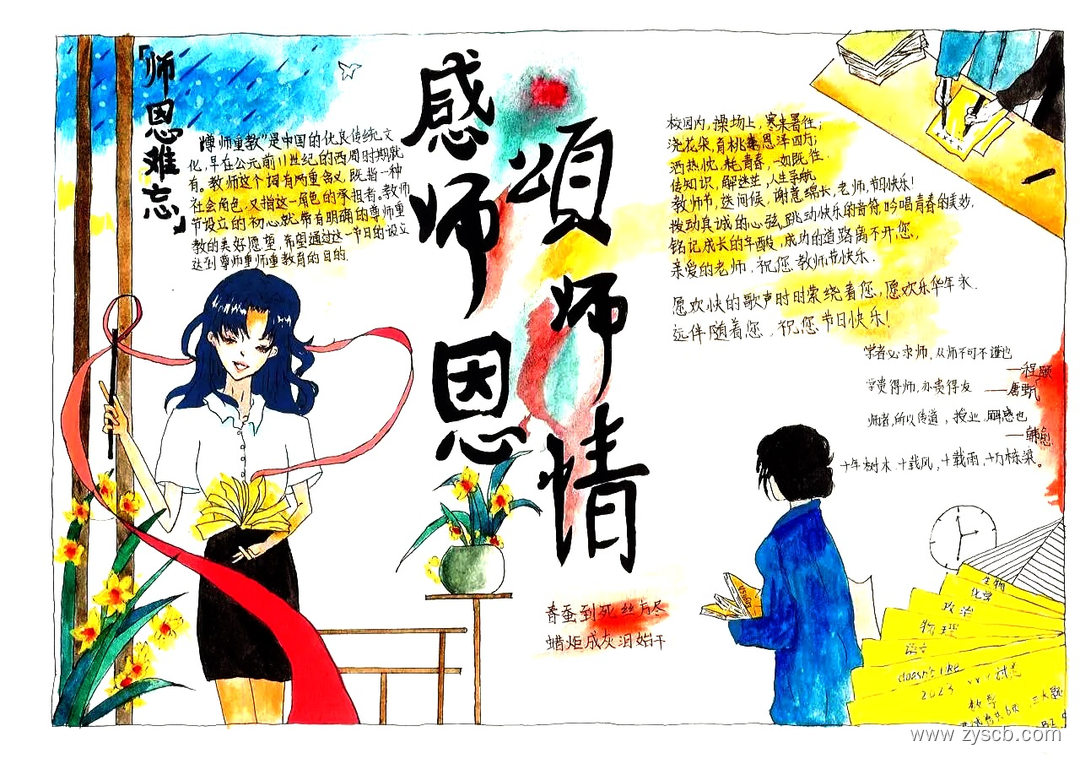 「师恩难忘」
"尊师重教"是中国的优良传统文
化,早在公元前11世纪的西周时期就
有。教师这个词有两重含义,既指一种
社会角色,又指这一角色的承担者。教师
节设立的初心就带有明确的尊师重
教的美好愿望,希望通过这一节日的设立
达到尊师重师重教育的目的.
感师恩
頌师情
春蚕到死丝方尽
蜡炬成灰泪始干
校园内,操场上,寒来暑往;
浇花朵,育桃李,恩泽四方;
洒热忱,耗青春,一如既往.
传知识,解迷茫,人生导航
教师节,送问候,谢意绵长,老师,节日快乐!
拨动真诚的心弦,跳动快乐的音符,吟唱青春的美妙,
铭记成长的辛酸,成功的道路离不开您,
亲爱的老师,祝您教师节快乐.
愿欢快的歌声时时萦绕着您,愿欢乐华年永
远伴随着您,祝您节日快乐!
学者必求师,从师不可不谨也
——程颐
学贵得师,亦贵得友 ——唐甄
师者,所以传道、授业、解惑也
——韩愈
十年树木,十载风,十载雨,十万栋梁。
生物
化学
政治
物理
语文
doesn't like
2023
数学
www.zyscb.com